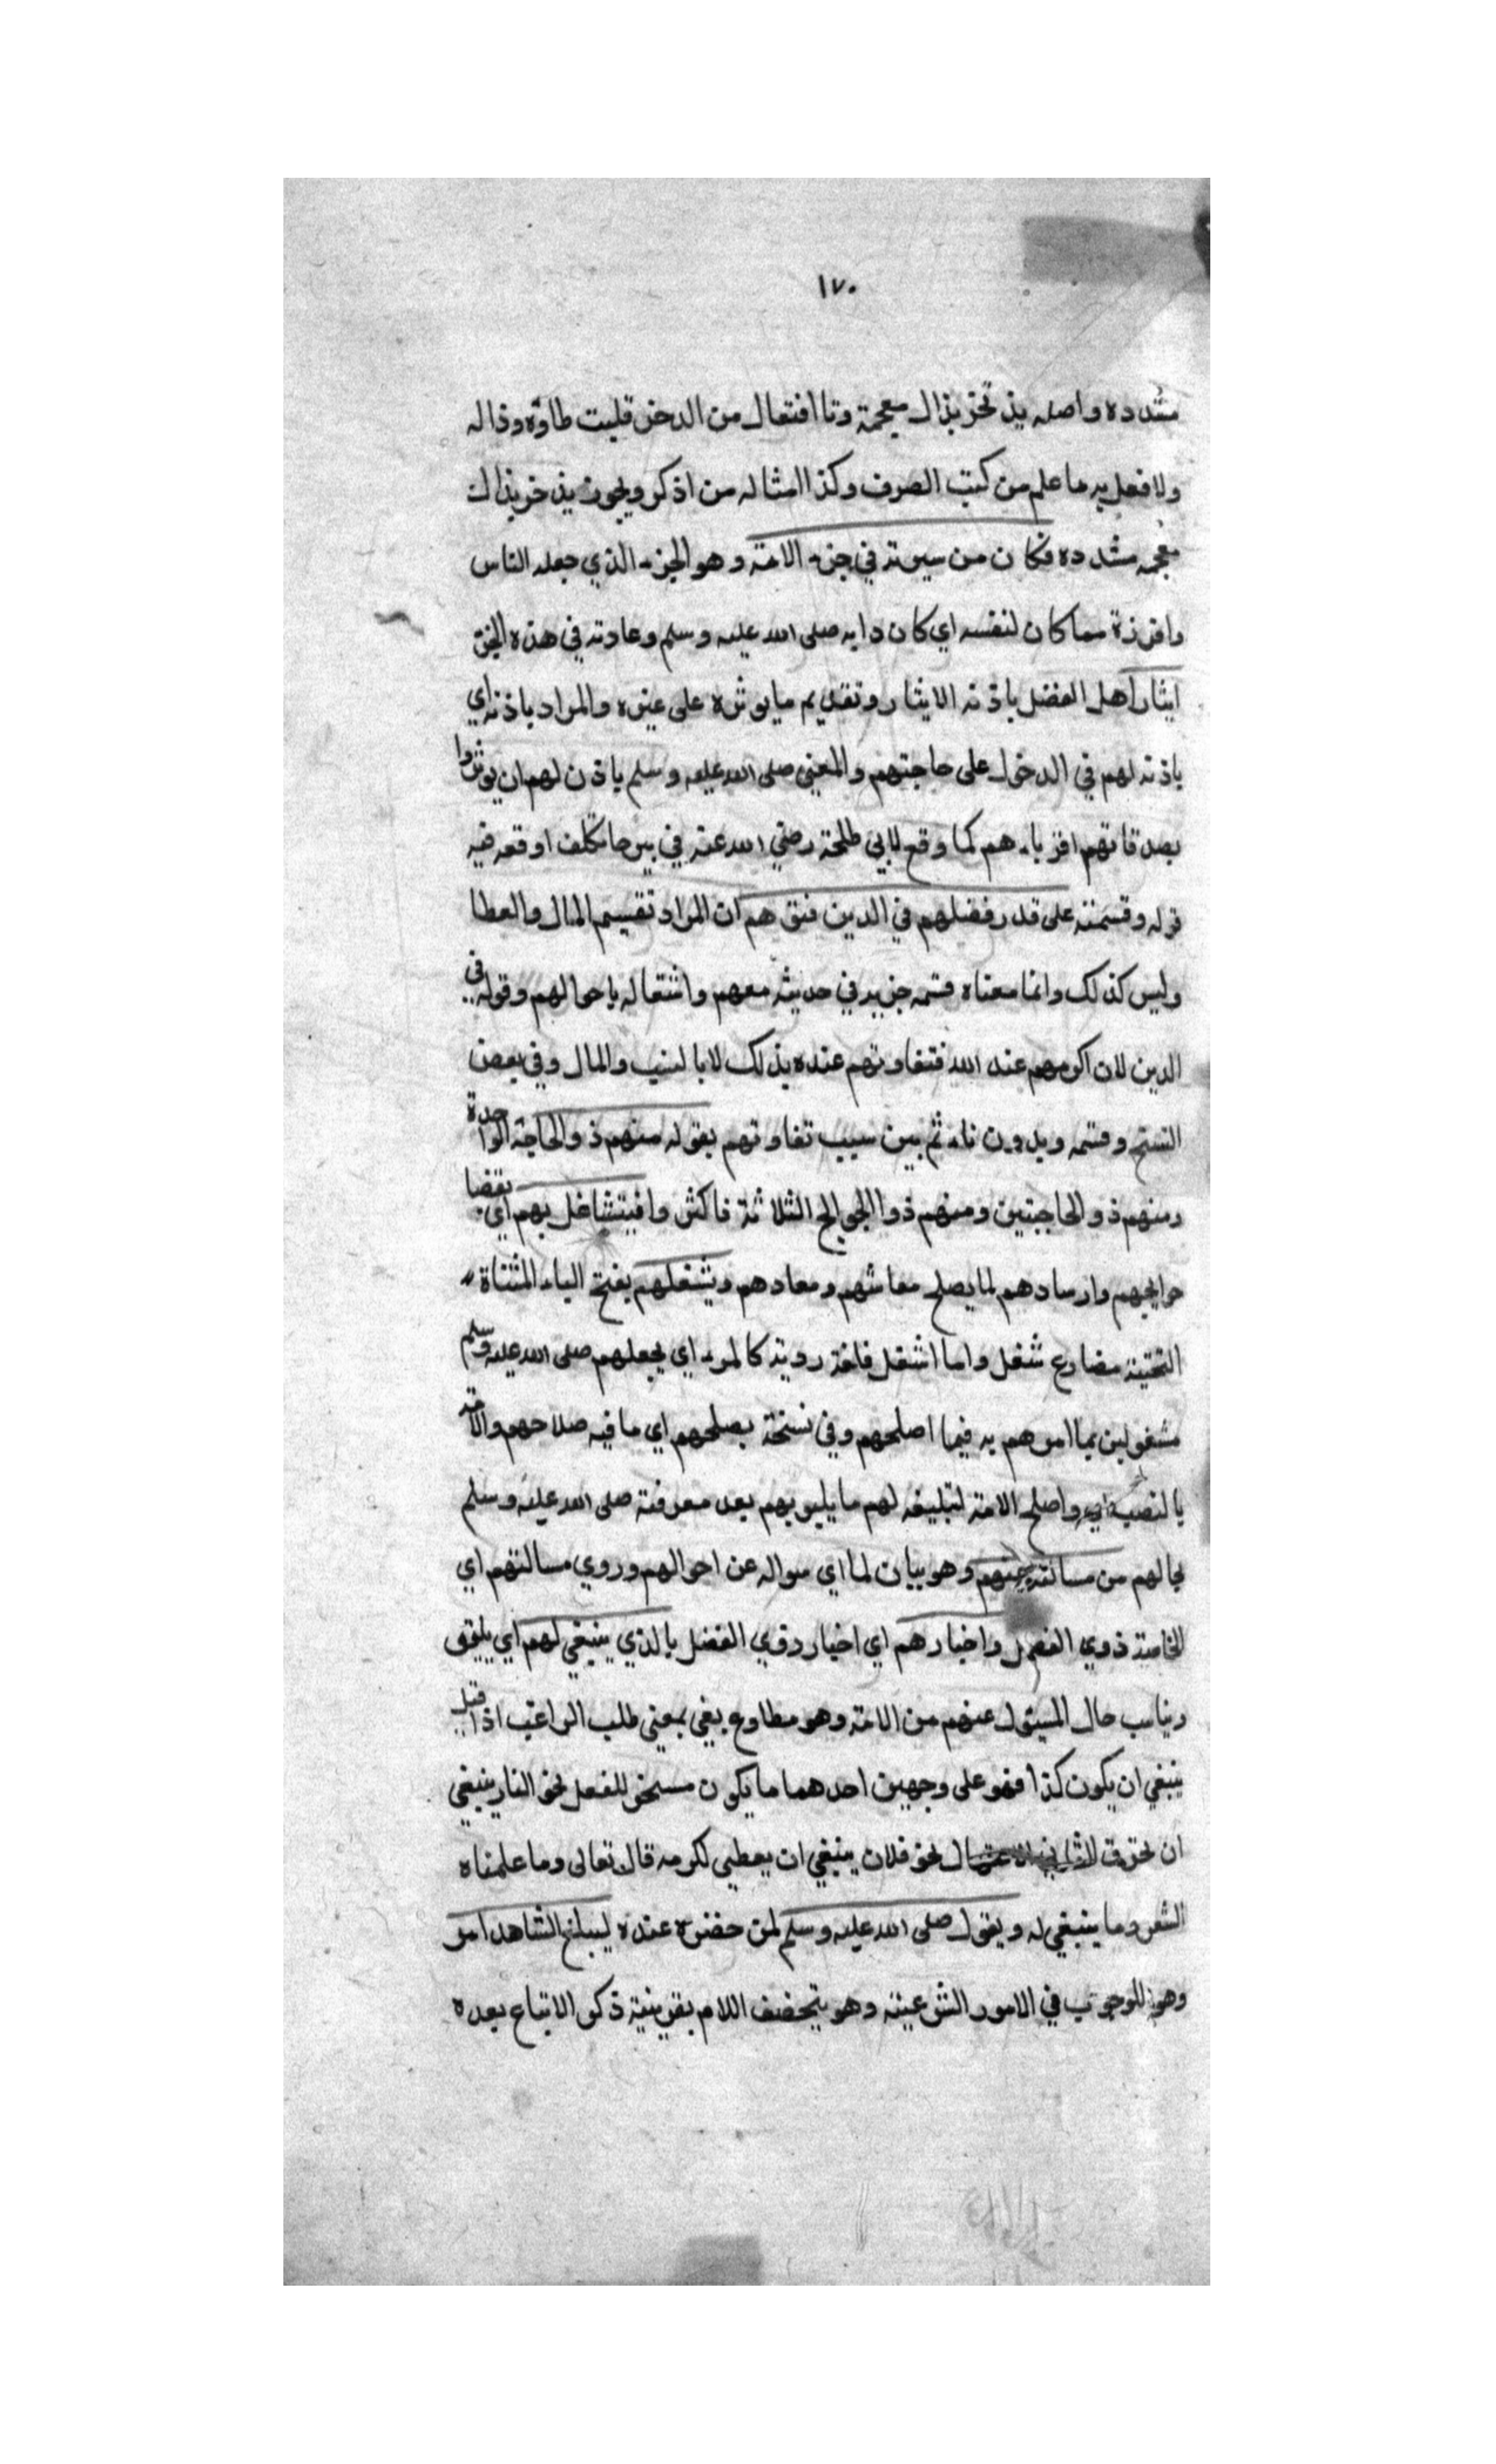 ١٧٠
مشدده واصله يذتخر بذال معجمة وتا افتعال من الدخر قلبت طاؤه وذاله
ولا فعل به ما علم من كتب الصرف وكذا امثاله من اذكر ويجوز يذخر بذال
معجمه مشدده فكان من سيرته في جزء الامة وهو الجزء الذي جعله الناس
وافرزة مما كان لنفسه اي كان دابه صلى الله عليه وسلم وعادته في هذه الجز
ايثار اهل الفضل باذنه الايثار وتقديم ما يوثره على غيره والمراد باذنه اي
باذنه لهم في الدخول على حاجتهم والمعني صلى الله عليه وسلم ياذن لهم ان يوثروا
بصدقاتهم اقرباءهم كما وقع لابي طلحة رضي الله عنه في بيرحا تكلف اوقعه فيه
قوله وقسمته على قدر فضلهم في الدين فتوهم ان المراد تقسيم المال والعطا
وليس كذلك وانما معناه قسمه جزيه في حديثه معهم واشتغاله باحوالهم وقوله في
الدين لان اكرمهم عند الله فتفاوتهم عنده بذلك لا بالنسب والمال وفي بعض
النسخ وقسمه وبدون تاء ثم بين سبب تفاوتهم بقوله منهم ذو الحاجة الواحدة
ومنهم ذو الحاجتين ومنهم ذوا الحوايج الثلاثة فاكثر وافيتشاغل بهم اي بقضا
حوايجهم وارسادهم لما يصلح معاشهم ومعادهم ويشغلهم بفتح الياء المثناة
التحتية مضارع شغل واما اشغل فلغة ردية كالمرء اي يجعلهم صلى الله عليه وسلم
مشغولين بما امرهم به فيما اصلحهم وفي نسخة يصلحهم اي ما فيه صلاحهم والامة
بالنصب اي واصلح الامة لتبليغه لهم ما يليو بهم بعد معرفته صلى الله عليه وسلم
بحالهم من مسالته عنهم وهو بيان لما اي سواله عن احوالهم وروي مسالتهم اي
الخاصة ذوي الفضل واخبارهم اي اخبار ذوي الفضل بالذي ينبغي لهم اي يليق
ويناسب حال المسيول عنهم من الامة وهو مطاوع بغي بمعني طلب الراغب اذا قيل
ينبغي ان يكون كذا فهو على وجهين احدهما ما يكون مسخر للفعل نحو النار ينبغي
ان تحترق الثاني نحو فلان ينبغي ان يعطي لكرمه قال تعالى وما علمناه
الشعر وما ينبغي له ويقول صلى الله عليه وسلم لمن حضره عنده ليبلغ الشاهد امر
وهو للوجوب في الامور الشرعية وهو بتخفيف اللام بقرينية ذكر الاتباع بعده